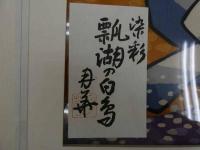 染彩
瓢湖の白鳥